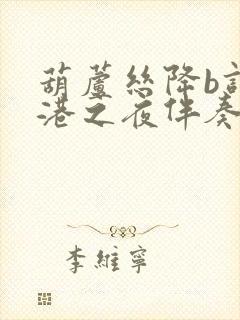 葫蘆絲降b調
港之夜伴奏
李維寧